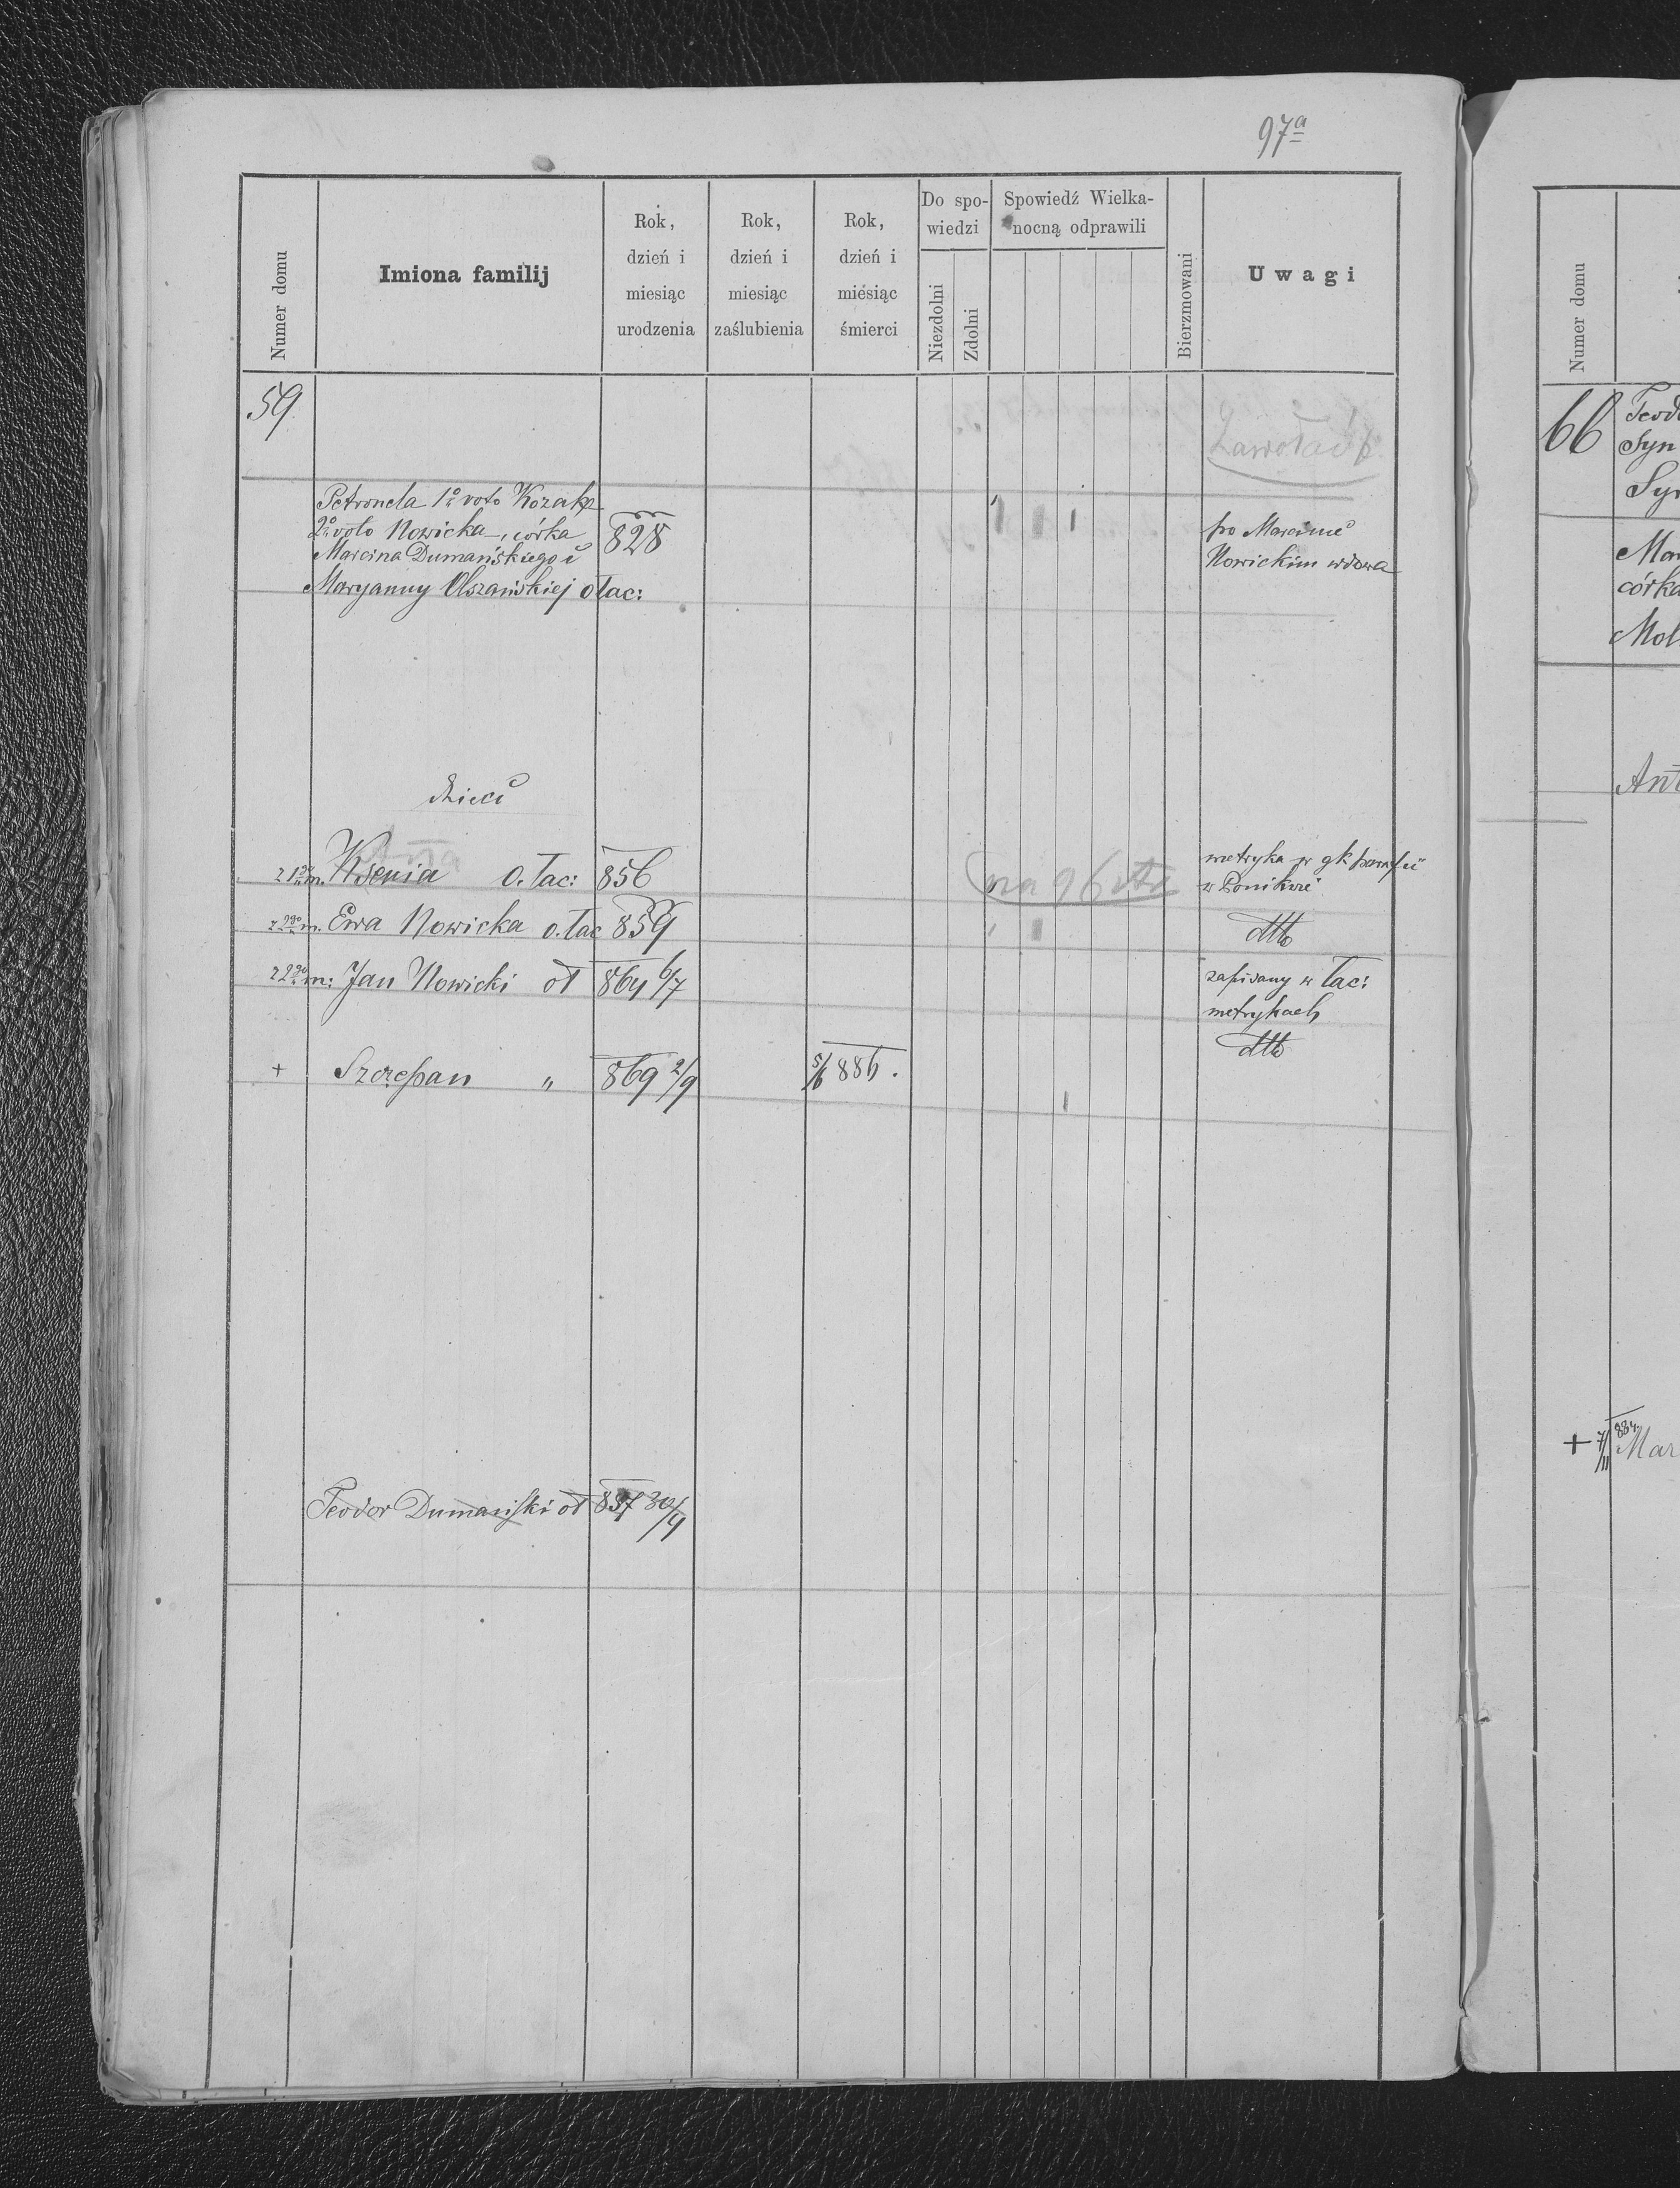 97a
Numer domu
Imiona familij
Rok,
dzień i
miesiąc
urodzenia
Rok,
dzień i
miesiąc
zaślubienia
Rok,
dzień i
miésiąc
śmierci
Do spo-
wiedzi
Niezdolni
Zdolni
Spowiedź Wielka-
nocną odprawili
Bierzmowani
Uwagi
59.
Petronela 1o voto Kozak
2o voto Nowicka, córka
Marcina Dumańskiego i
Maryanny Olszańskiej o łac:
828
po Marcinie
Nowickim wdowa
dzieci
z 1go m. Ksenia o. łac: 856
na 96
metryka w gk parafii
w Ponikwie
z 2go m. Ewa Nowicka o. łac 859
dtto
z 2go m: Jan Nowicki oł 864 6/7
zapisany w łac:
metrykach
+ Szczepan " 869 2/9
5/6 886.
dtto
Teodor Dumański oł 857 30/4
Numer domu
66
Teod
Syn
Sy
Mar
córka
Mol
Ant
+ 7/11 884
Mar